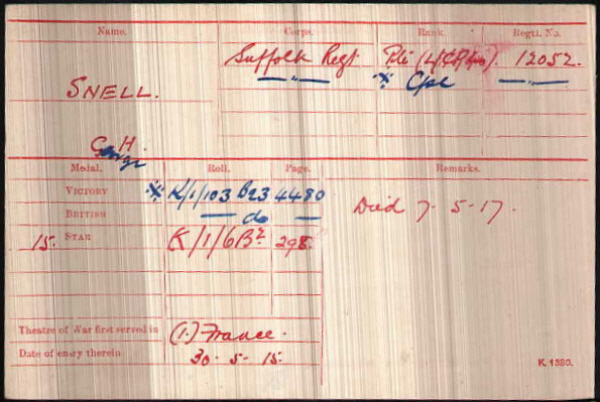 Name. Corps. Rank. Regtl. No.
Suffolk Regt Pte 12052.
* Cpl
SNELL.
G H
George
Medal. Roll. Page. Remarks.
VICTORY * K/1/103 B23 4480
BRITISH do
Died 7-5-17.
15. STAR K/1/6B² 298.
Theatre of War first served in (1.) France.
Date of entry therein 30-5-15.
K. 1380.